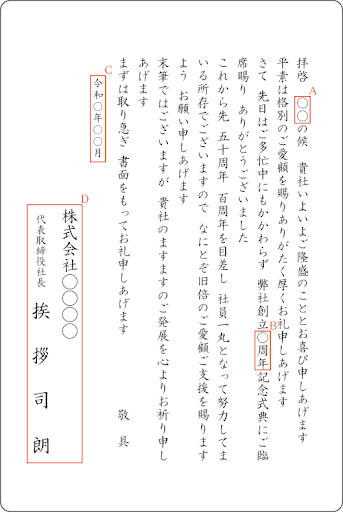 拝啓　〇〇の候　貴社いよいよご隆盛のこととお喜び申しあげます
平素は格別のご愛顧を賜りありがたく厚くお礼申しあげます
さて　先日はご多忙中にもかかわらず　弊社創立〇周年記念式典にご臨
席賜り　ありがとうございました
これから先　五十周年　百周年を目差し　社員一丸となって努力してま
いる所存でございますので　なにとぞ旧倍のご愛顧ご支援を賜ります
よう　お願い申しあげます
末筆ではございますが　貴社のますますのご発展を心よりお祈り申し
あげます
まずは取り急ぎ　書面をもってお礼申しあげます
敬　具
令和〇年〇〇月
株式会社〇〇〇〇
代表取締役社長
挨　拶　司　朗
A
B
C
D